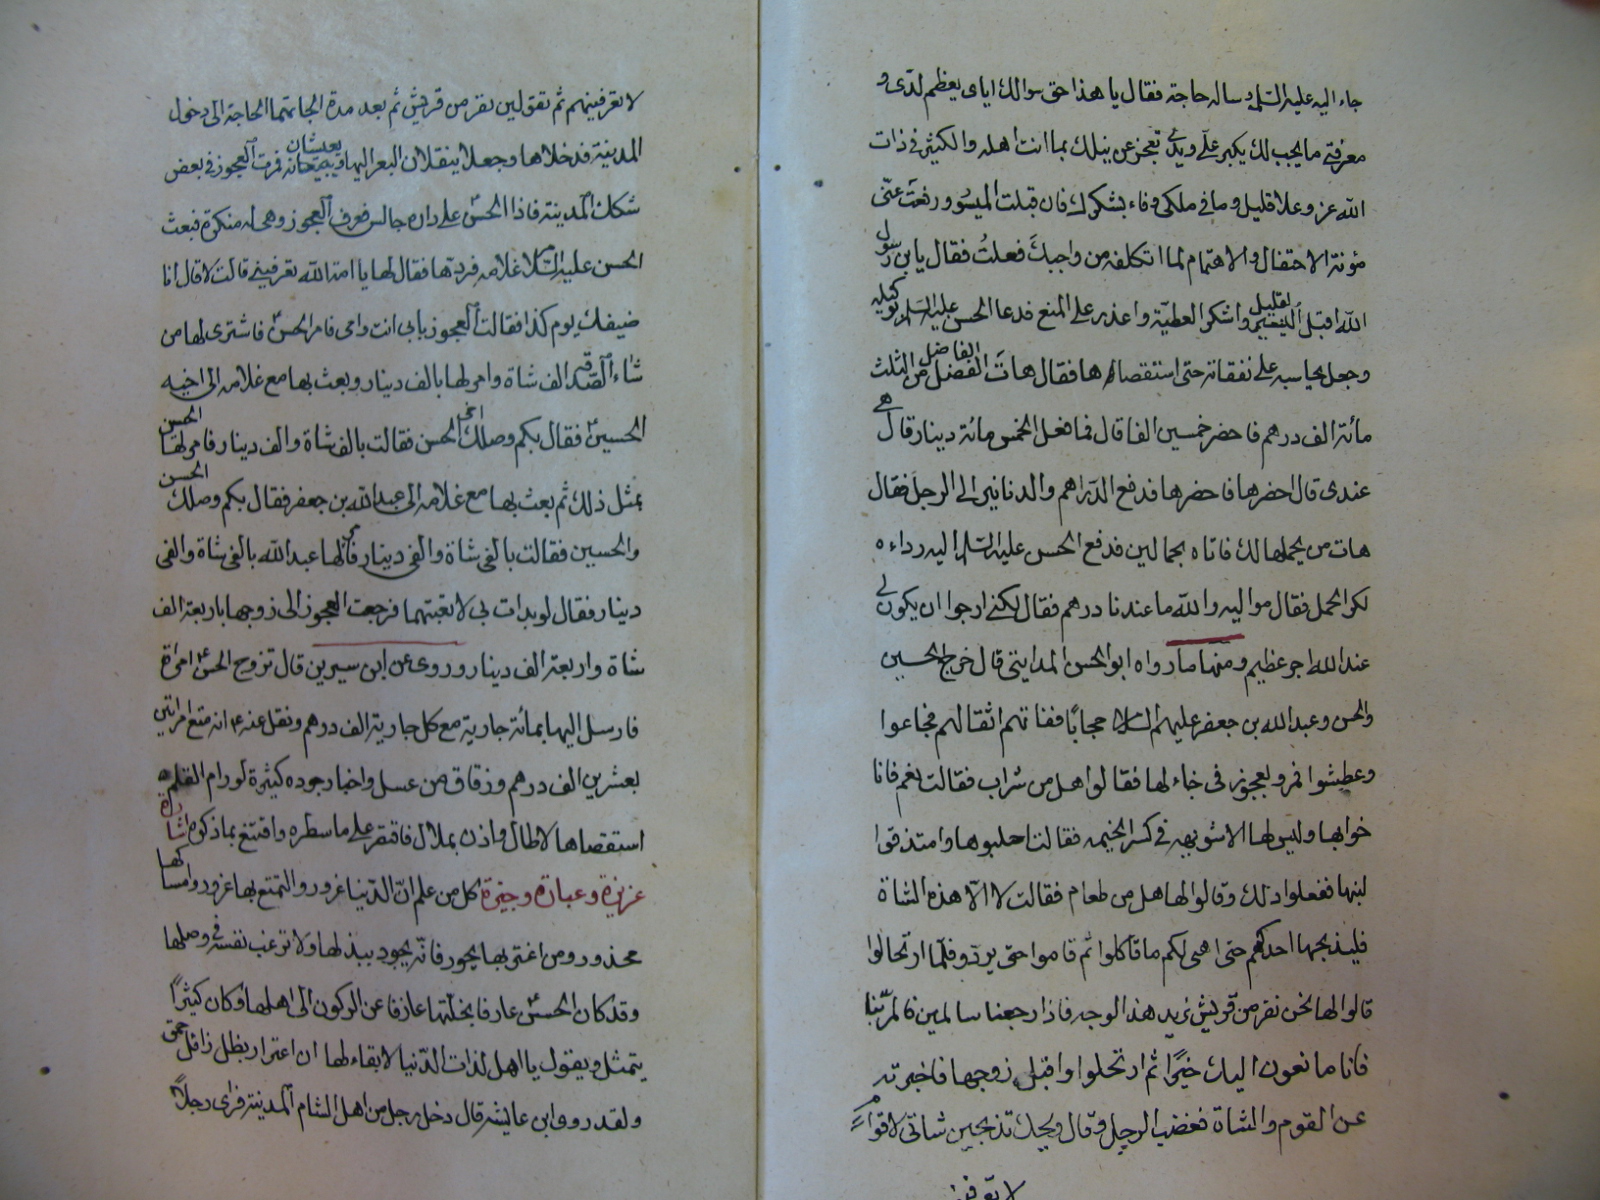 جاء اليه عليه السلام وساله حاجة فقال يا هذا حق سوالك اياى يعظم لدى و
معرفتى ما يجب لك يكبر على ويدى تعجز عن نيلك بما انت اهله والكثير فى ذات
الله عز وعلا قليل وما فى ملكى وفاء بشكرك فان قبلت الميسور ورفعت عنى
مؤنة الاحتفال والاهتمام لما اتكلفه من واجبك فعلت فقال يابن رسول
الله اقبل القليل واشكر العطية واعذر على المنع فدعا الحسن عليه السلام وكيله
وجعل يحاسبه على نفقاته حتى استقصاها فقال هات الفاضل من الثلث
مائة الف درهم فاحضر خمسين الفا قال فما فعل الخمس مائة دينار قال هى
عندى قال احضرها فاحضرها فدفع الدراهم والدنانير الى الرجل فقال
هات من يحملها لك فاتاه بحمالين فدفع الحسن عليه السلام اليه رداءه
لكرا الحمل فقال مواليه والله ما عندنا درهم فقال لكنى ارجوا ان يكون لى
عند الله اجر عظيم ومنها ما رواه ابو الحسن المداينى قال خرج الحسين
والحسن وعبد الله بن جعفر عليهم السلام حجاجا ففاتهم اثقالهم فجاعوا
وعطشوا فمروا بعجوز فى خباء لها فقالوا هل من شراب فقالت نعم فاناخوا
بها وليس لها الا شويهه فى كسر الخيمه فقالت احلبوها وامتذقوا
لبنها ففعلوا ذلك وقالوا لها هل من طعام فقالت لا الا هذه الشاة
فليذبحها احدكم حتى اهيى لكم ما تاكلوا ثم قاموا حتى بردوا فلما ارتحالوا
قالوا لها نحن نفر من قريش نريد هذا الوجه فاذا رجعنا سالمين فالمى بنا
فانا صانعون اليك خيرا ثم ارتحلوا واقبل زوجها فاخبرته
عن القوم والشاة فغضب الرجل وقال ويحك تذبحين شاتى لاقوام
لا تعرفينهم
لا تعرفينهم ثم تقولين نفر من قريش ثم بعد مدة الجاتهما الحاجة الى دخول
المدينة فدخلاها وجعلا ينقلان البعر اليها ويبيعانه يعيشان فمرت العجوز فى بعض
سكك المدينة فاذا الحسن على داره جالس فعرف العجوز وهى له منكرة فبعث
الحسن عليه السلام غلامه فردها فقال لها يا امة الله تعرفينى قالت لا قال انا
ضيفك يوم كذا فقالت العجوز بابى انت وامى فامر الحسن فاشترى لها من
شاء الصدقه الف شاة وامر لها بالف دينار وبعث بها مع غلامه الى اخيه
الحسين فقال بكم وصلك اخى الحسن فقالت بالف شاة والف دينار فامر لها الحسين
بمثل ذلك ثم بعث بها مع غلامه الى عبد الله بن جعفر فقال بكم وصلك الحسن
والحسين فقالت بالفى شاة والفى دينار فامر لها عبد الله بالفى شاة والفى
دينار فقال لو بدات بى لاتعبتهما فرجعت العجوز الى زوجها باربعة الف
شاة واربعة الف دينار وروى عن ابن سيرين قال تزوج الحسن امراة
فارسل اليها بمائة جارية مع كل جارية الف درهم ونقل عنه انه متع امراتين
بعشرين الف درهم وزقاق من عسل واخبار جوده كثيرة لو رام القلم
استقصاها لاطال واذن بملال فاقتصر على ما سطره واقتنع بما ذكره اشارة
عزيزة وعبارة وجيزة كل من علم ان الدنيا غرور والتمتع بها غرور وامساكها
محذور ومن اغتر بها يحور فانه يجود ببذلها ولا ترغب نفسه فى وصلها
وقد كان الحسن عارفا بختلها عازفا عن الركون الى اهلها وكان كثيرا
يتمثل ويقول يا اهل لذات الدنيا لا بقاء لها ان اغترار بظل زائل حمق
ولقد روى ابن عايشه قال دخل رجل من اهل الشام المدينة فراى رجلا